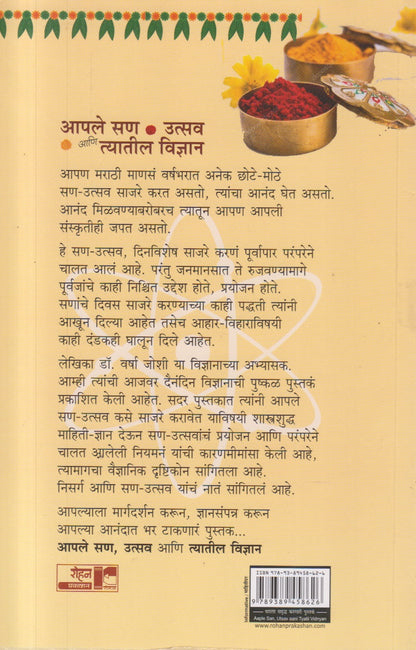 आपले सण • उत्सव
• आणि त्यातील विज्ञान
आपण मराठी माणसं वर्षभरात अनेक छोटे-मोठे
सण-उत्सव साजरे करत असतो, त्यांचा आनंद घेत असतो.
आनंद मिळवण्याबरोबरच त्यातून आपण आपली
संस्कृतीही जपत असतो.
हे सण-उत्सव, दिनविशेष साजरे करणं पूर्वापार परंपरेने
चालत आलं आहे. परंतु जनमानसात ते रुजवण्यामागे
पूर्वजांचे काही निश्चित उद्देश होते, प्रयोजन होते.
सणांचे दिवस साजरे करण्याच्या काही पद्धती त्यांनी
आखून दिल्या आहेत तसेच आहार-विहाराविषयी
काही दंडकही घालून दिले आहेत.
लेखिका डॉ. वर्षा जोशी या विज्ञानाच्या अभ्यासक.
आम्ही त्यांची आजवर दैनंदिन विज्ञानाची पुष्कळ पुस्तकं
प्रकाशित केली आहेत. सदर पुस्तकात त्यांनी आपले
सण-उत्सव कसे साजरे करावेत याविषयी शास्त्रशुद्ध
माहिती-ज्ञान देऊन सण-उत्सवांचं प्रयोजन आणि परंपरेने
चालत आलेली नियमनं यांची कारणमीमांसा केली आहे,
त्यामागचा वैज्ञानिक दृष्टिकोन सांगितला आहे.
निसर्ग आणि सण-उत्सव यांचं नातं सांगितलं आहे.
आपल्याला मार्गदर्शन करून, ज्ञानसंपन्न करून
आपल्या आनंदात भर टाकणारं पुस्तक...
आपले सण, उत्सव आणि त्यातील विज्ञान
रोहन
प्रकाशन
ISBN 978-93-89458-62-6
9 789389 458626
Informative : माहितीपर
Aaple San, Utsav aani Tyatil Vidnyan
www.rohanprakashan.com